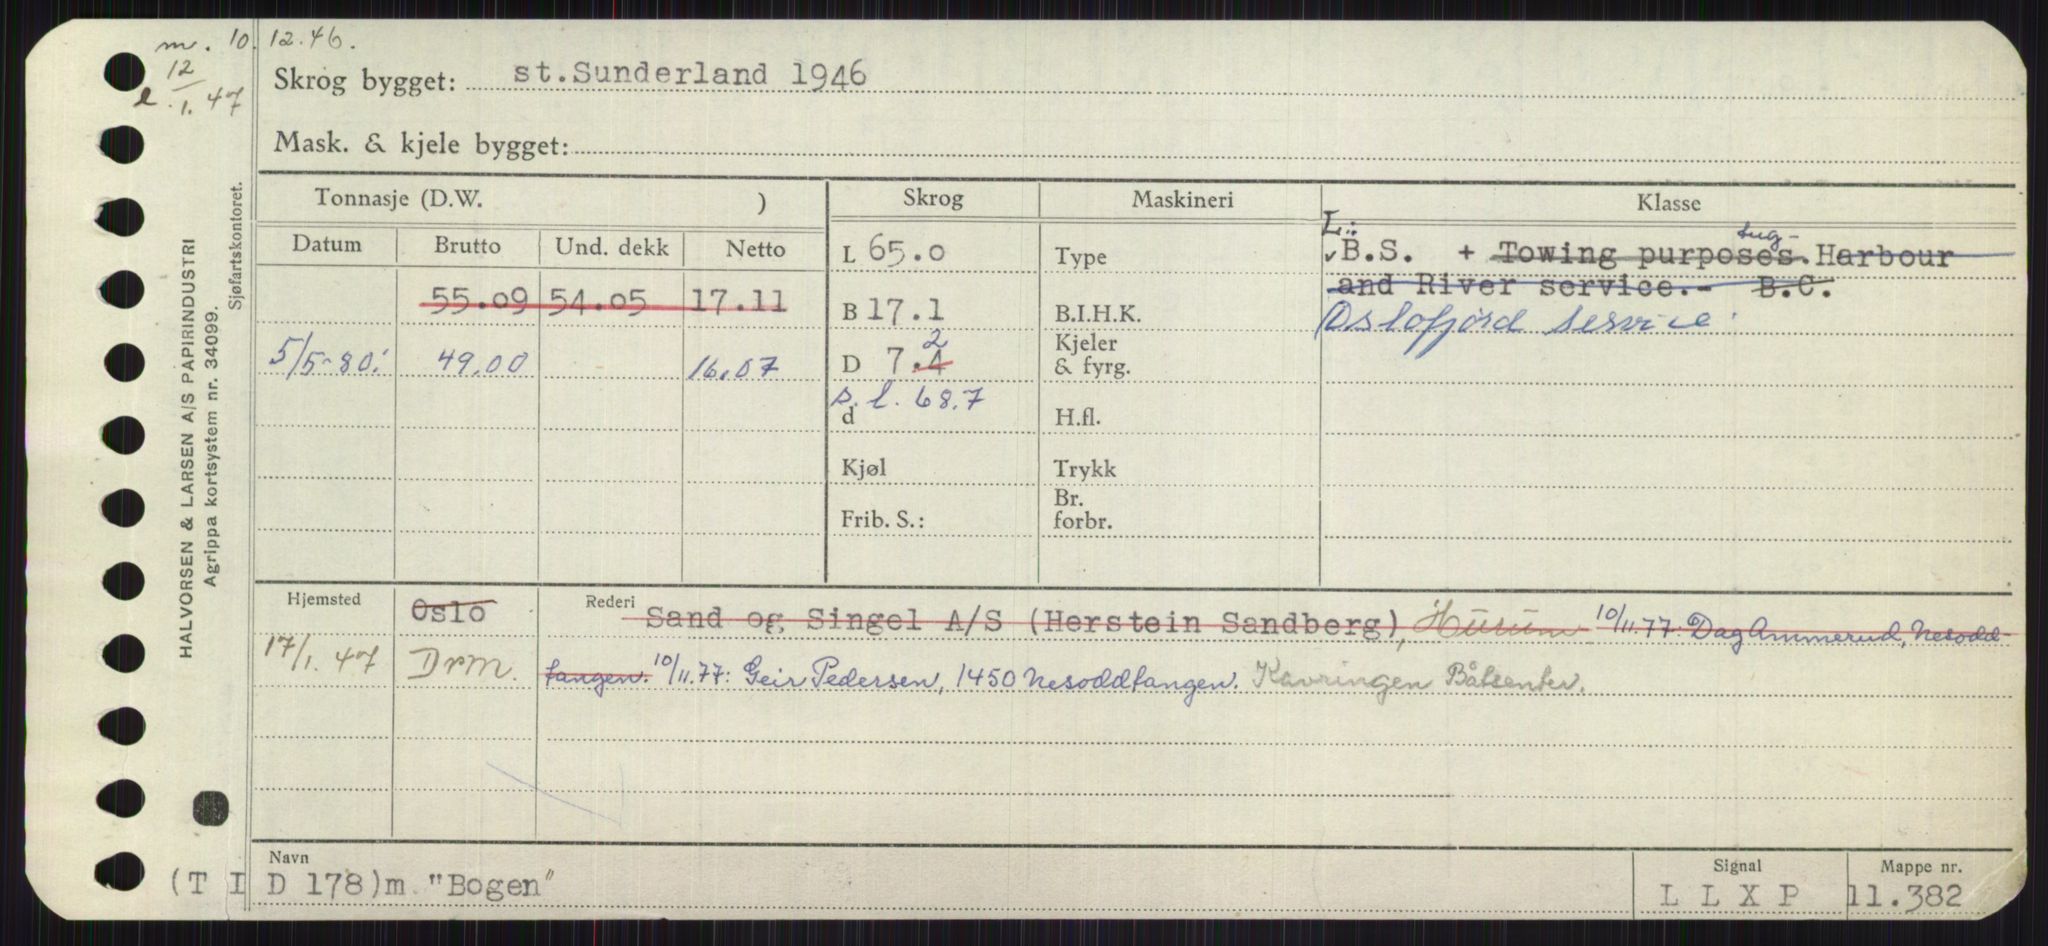 m. 10.12.46.
12
l. 1.47
Skrog bygget: st.Sunderland 1946
Mask. & kjele bygget:
HALVORSEN & LARSEN A/S PAPIRINDUSTRI
Agrippa kortsystem nr. 34099.
Sjøfartskontoret.
Tonnasje (D.W. ) Skrog Maskineri Klasse
Datum Brutto Und. dekk Netto
L 65.0 Type
L: B.S. + Towing purposes. tug- Harbour
and River service.- B.C.
55.09 54.05 17.11 B 17.1 B.I.H.K.
Oslofjord service.
5/5-80. 49.00 16.07 D 7.4 2 Kjeler & fyrg.
s.l. 68.7
d H.fl.
Kjøl Trykk
Frib. S.: Br. forbr.
Hjemsted Oslo Rederi Sand og Singel A/S (Herstein Sandberg), Hurum 10/11.77: Dag Ammerud, Nesodd-
17/1.47 Drm. tangen. 10/11.77: Geir Pedersen, 1450 Nesoddtangen. Kavringen Båtsenter.
Navn Signal Mappe nr.
(T I D 178)m "Bogen" L L X P 11.382